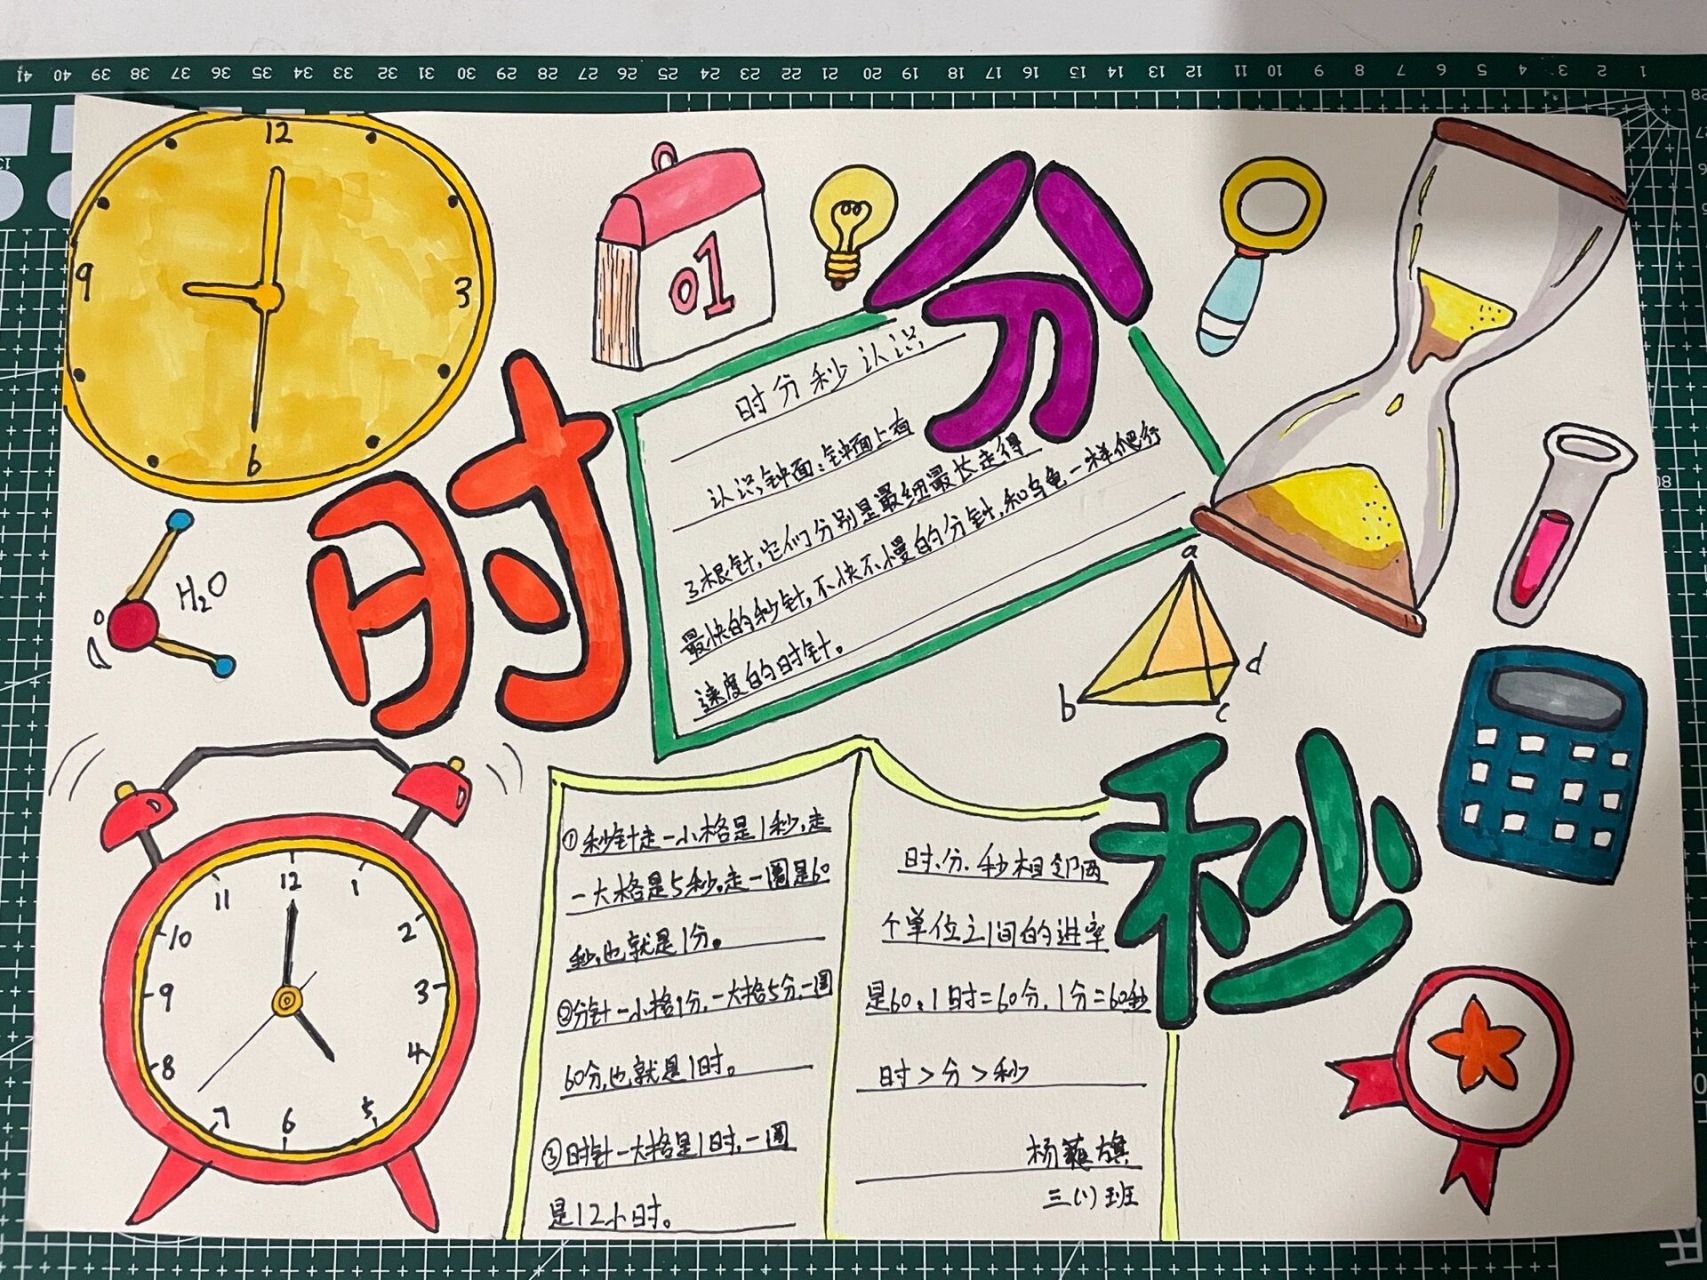 12
9
3
6
01
时
分
秒
时分秒认识
认识钟面:钟面上有
3根针,它们分别是最细最长走得
最快的秒针,不快不慢的分针,和乌龟一样爬行
速度的时针。
H₂O
a
b
c
d
12
1
2
3
4
5
6
7
8
9
10
11
①秒针走一小格是1秒,走
一大格是5秒。走一圈是60
秒,也就是1分。
②分针一小格1分,一大格5分,一圈
60分,也就是1时。
③时针一大格是1时,一圈
是12小时。
时、分、秒相邻两
个单位之间的进率
是60。1时=60分,1分=60秒
时>分>秒
杨 旗
三(1)班
41 40 39 38 37 36 35 34 33 32 31 30 29 28 27 26 25 24 23 22 21 20 19 18 17 16 15 14 13 12 11 10 9 8 7 6 5 4 3 2 1